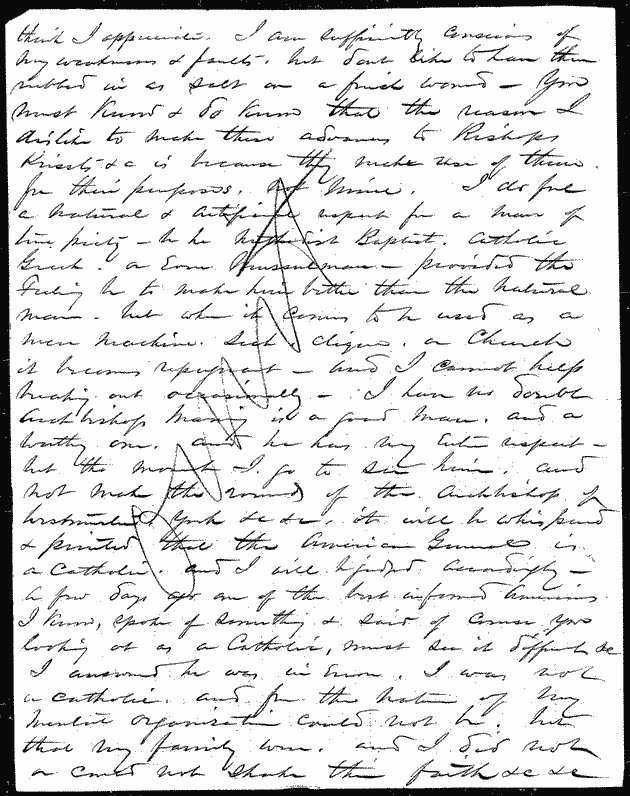 think I appreciate. I am sufficiently conscious of
my weakness & faults. but dont like to have them
rubbed in as salt on a fresh wound - You
must Know & do Know that the reason I
dislike to make these advances to Bishops
Priests &c is because they make use of them
for their purposes. not mine. I do feel
a natural & artificial respect for a man of
true piety - be he Methodist Baptist. Catholic
Greek. or Even Mussulman - provided the
Feeling be to make him better than the natural
man. but when it comes to be used as a
mere machine. Sect clique. or Church
it becomes repugnant - and I cannot help
breaking out occasionally - I have no doubt
Archbishop Manning is a good man. and a
worthy one. and he has my Entire respect -
but the moment I go to see him. and
not make the rounds of the Archbishop of
Westminster York &c &c. it will be whispered
& printed that the American General is
a Catholic. and I will be judged accordingly -
a few days ago one of the best informed Americans
I Know, spoke of something & said of Course you
looking at as a Catholic, must see it different &c
I answered he was in Error. I was not
a Catholic. and from the nature of my
mental organization could not be. but
that my family were. and I did not
or could not shake their faith &c &c